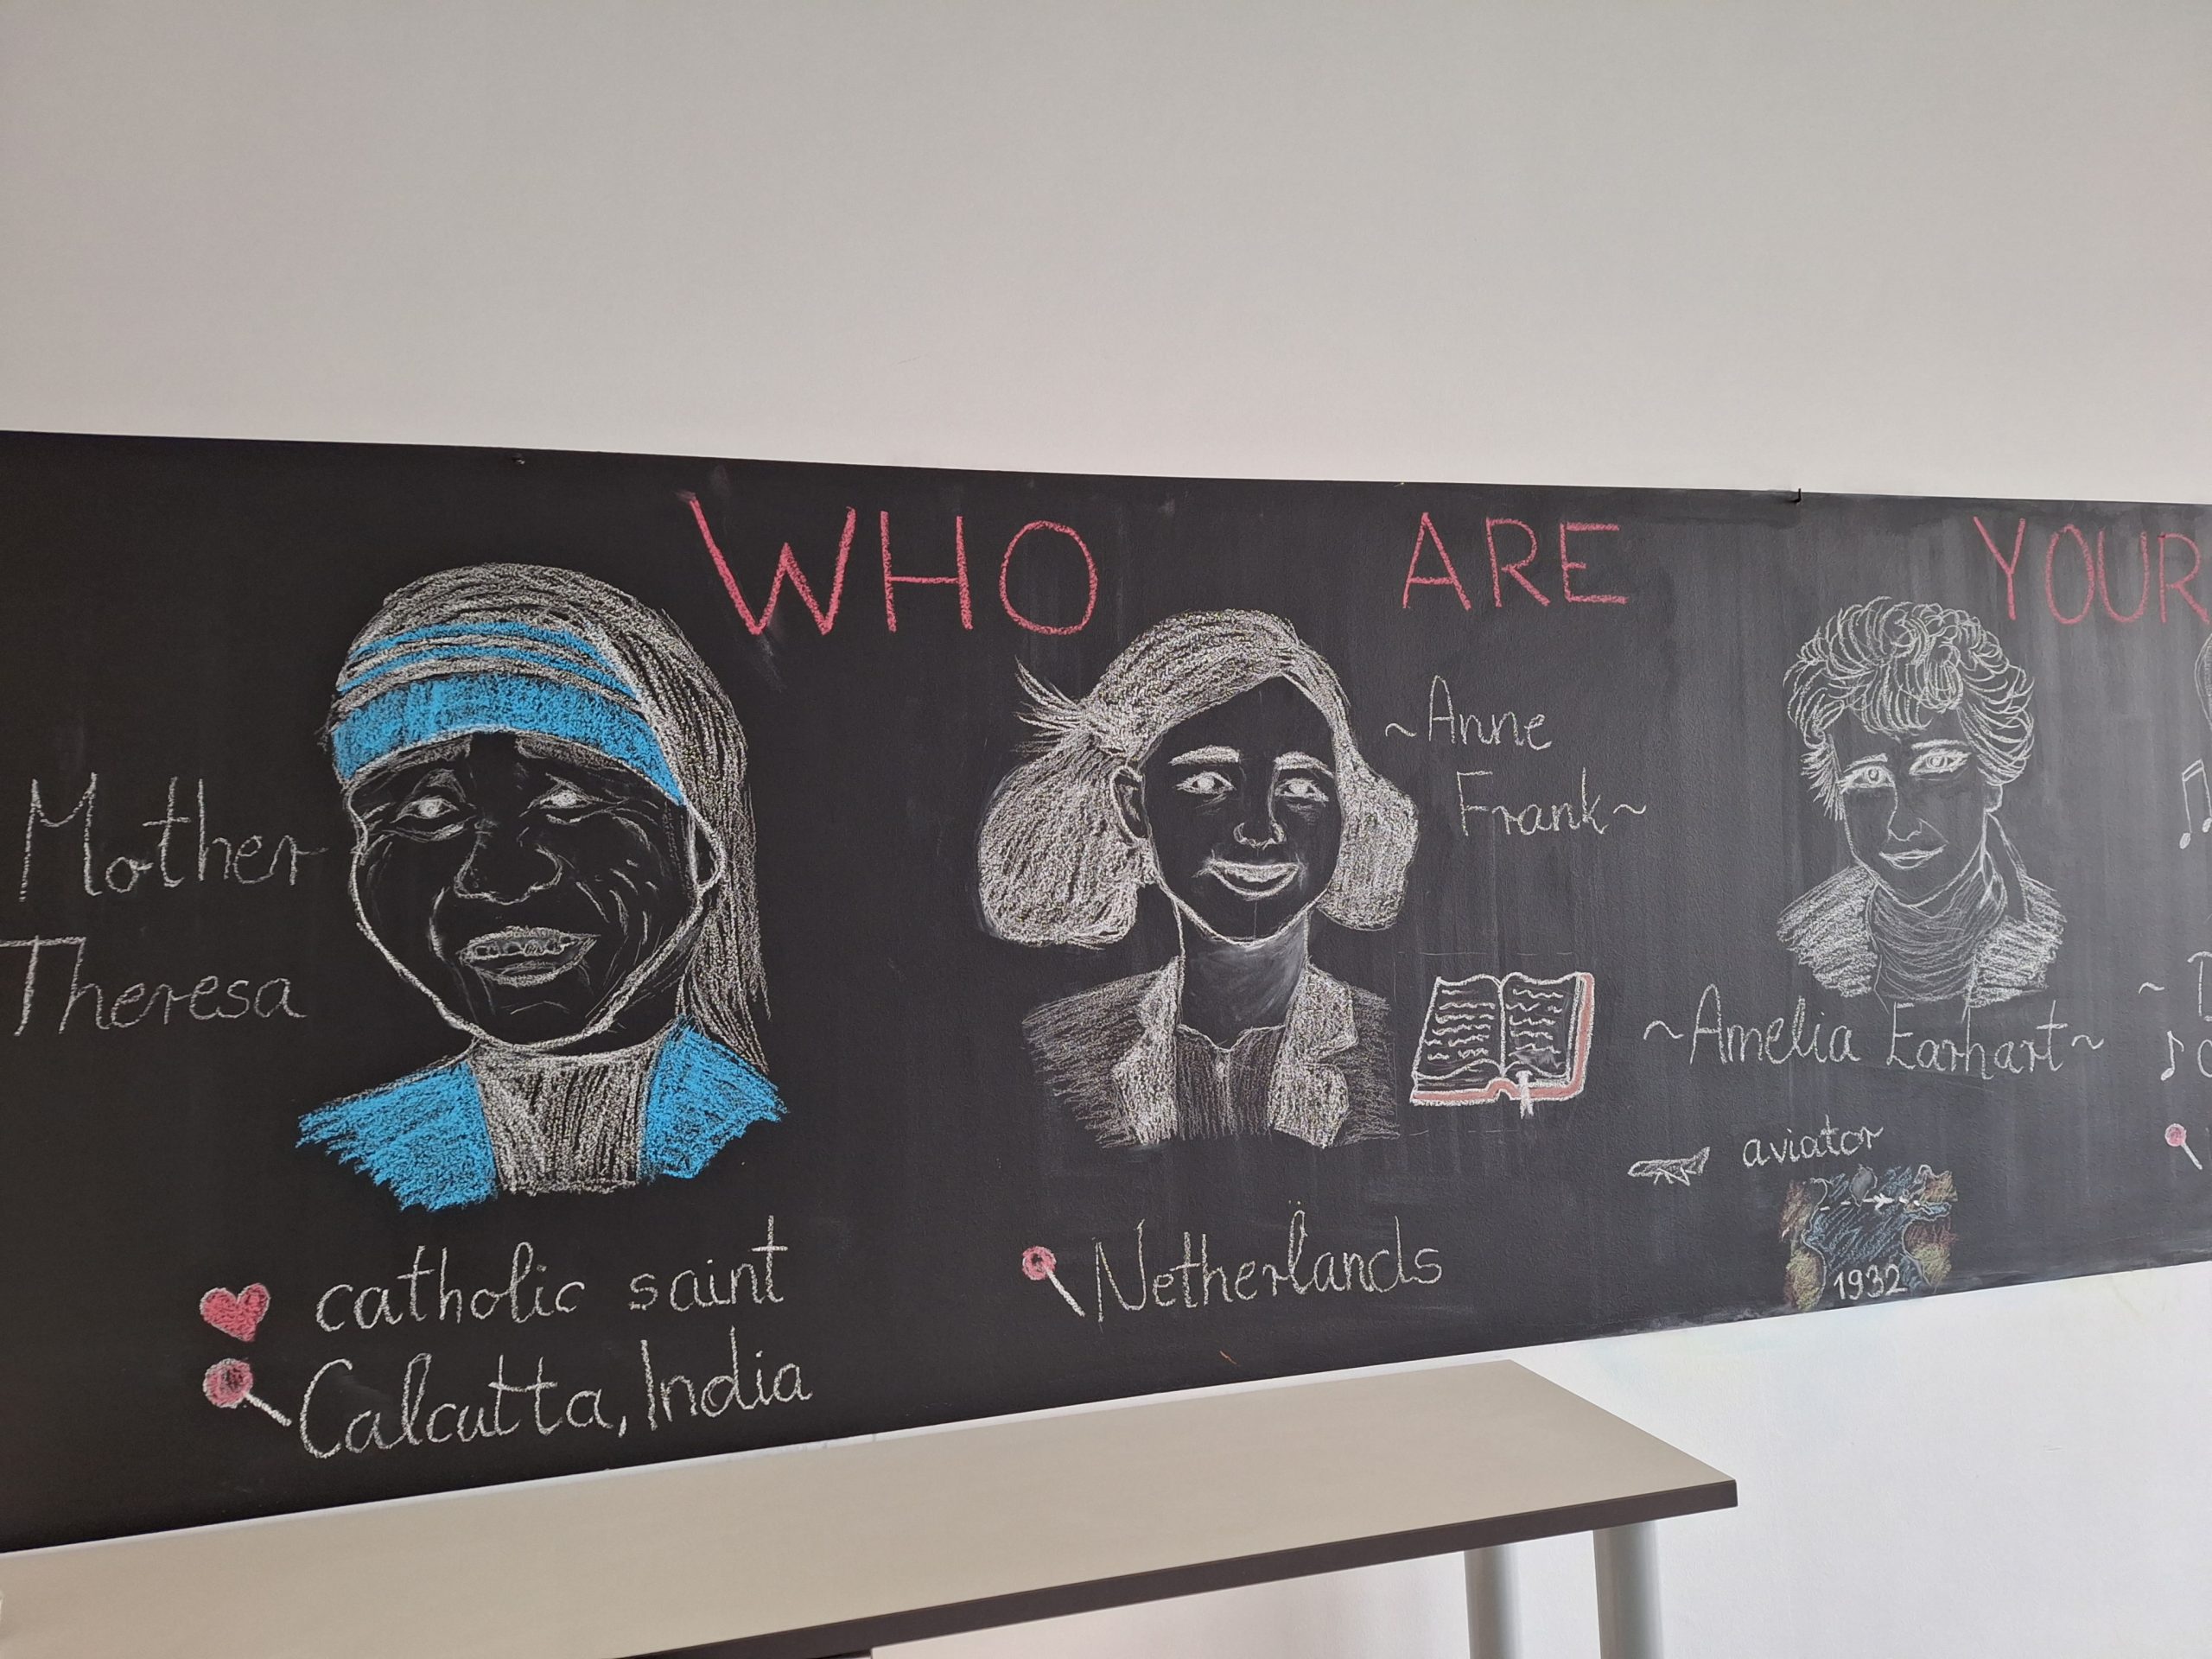 WHO ARE YOUR
Mother
Theresa
catholic saint
Calcutta, India
~Anne
Frank~
Netherlands
~Amelia Earhart~
aviator
1932